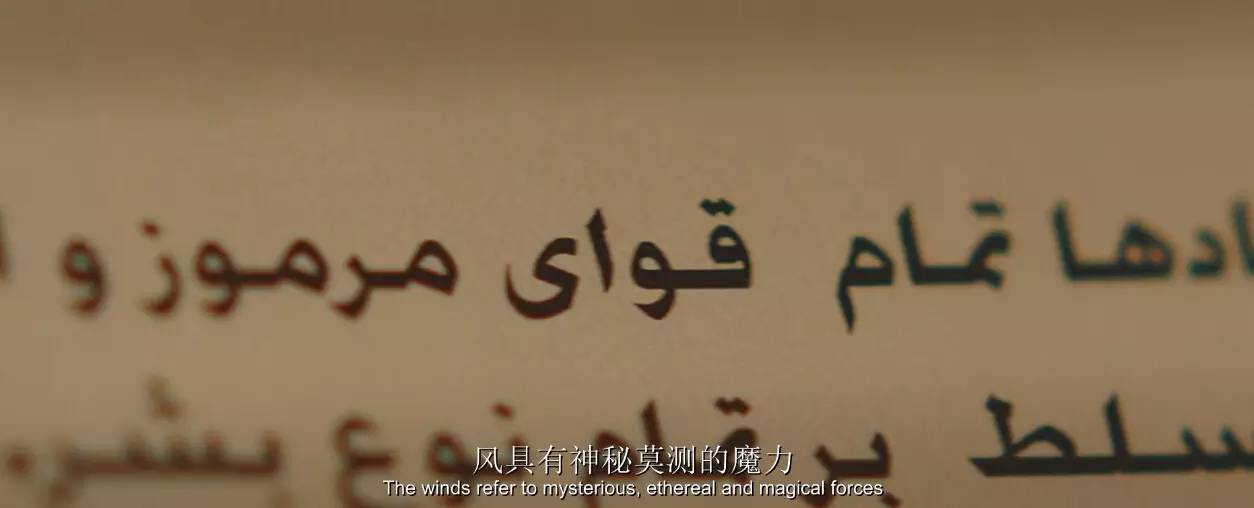 تمام قوای مرموز و
مسلط بر تمام نوع بشر
风具有神秘莫测的魔力
The winds refer to mysterious, ethereal and magical forces